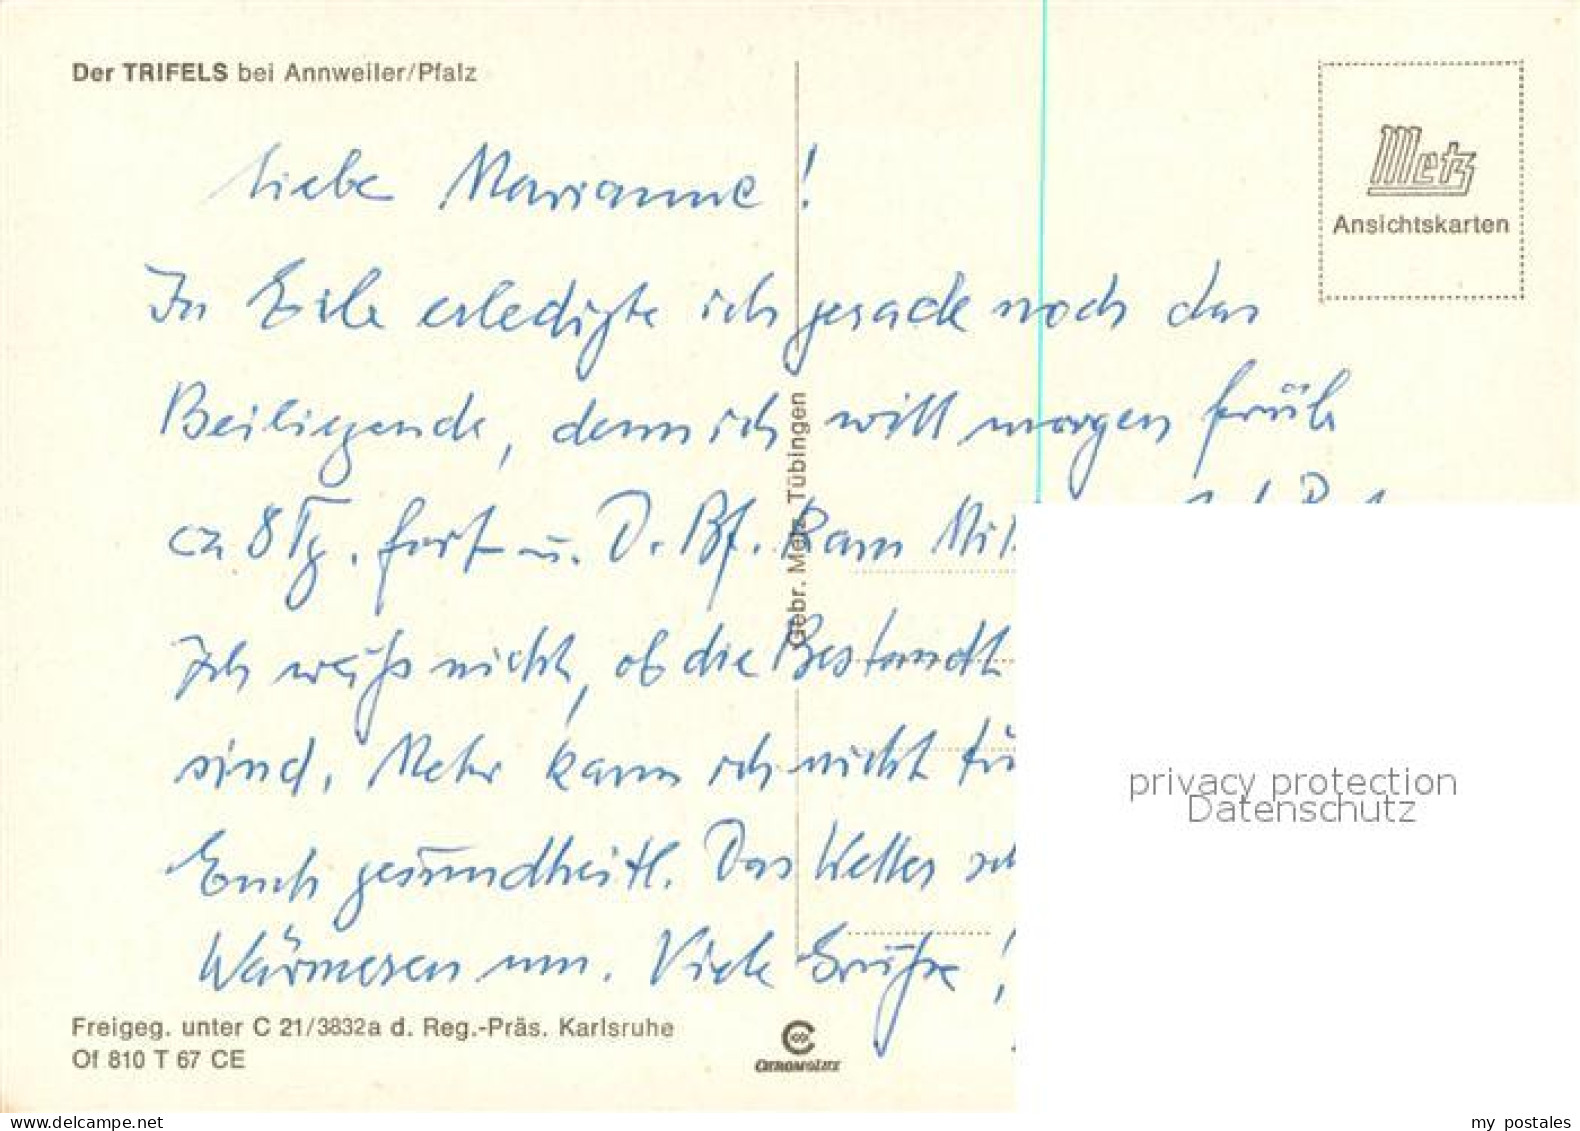 Der TRIFELS bei Annweiler/Pfalz
Metz
Ansichtskarten
Liebe Marianne!
In Eile erledigte ich gerade noch das
Beiliegende, denn ich will morgen früh
ca 8 Tg. fort u. D. Bf. kam
Ich weiß nicht, ob die
sind. Mehr kann ich nicht
Euch gesundheitl. Das Wetter
Wärmeren um. Viele Grüße!
Gebr. Metz, Tübingen
privacy protection
Datenschutz
Freigeg. unter C 21/3832a d. Reg.-Präs. Karlsruhe
Of 810 T 67 CE
CHROMOLUX
www.delcampe.net
my postales